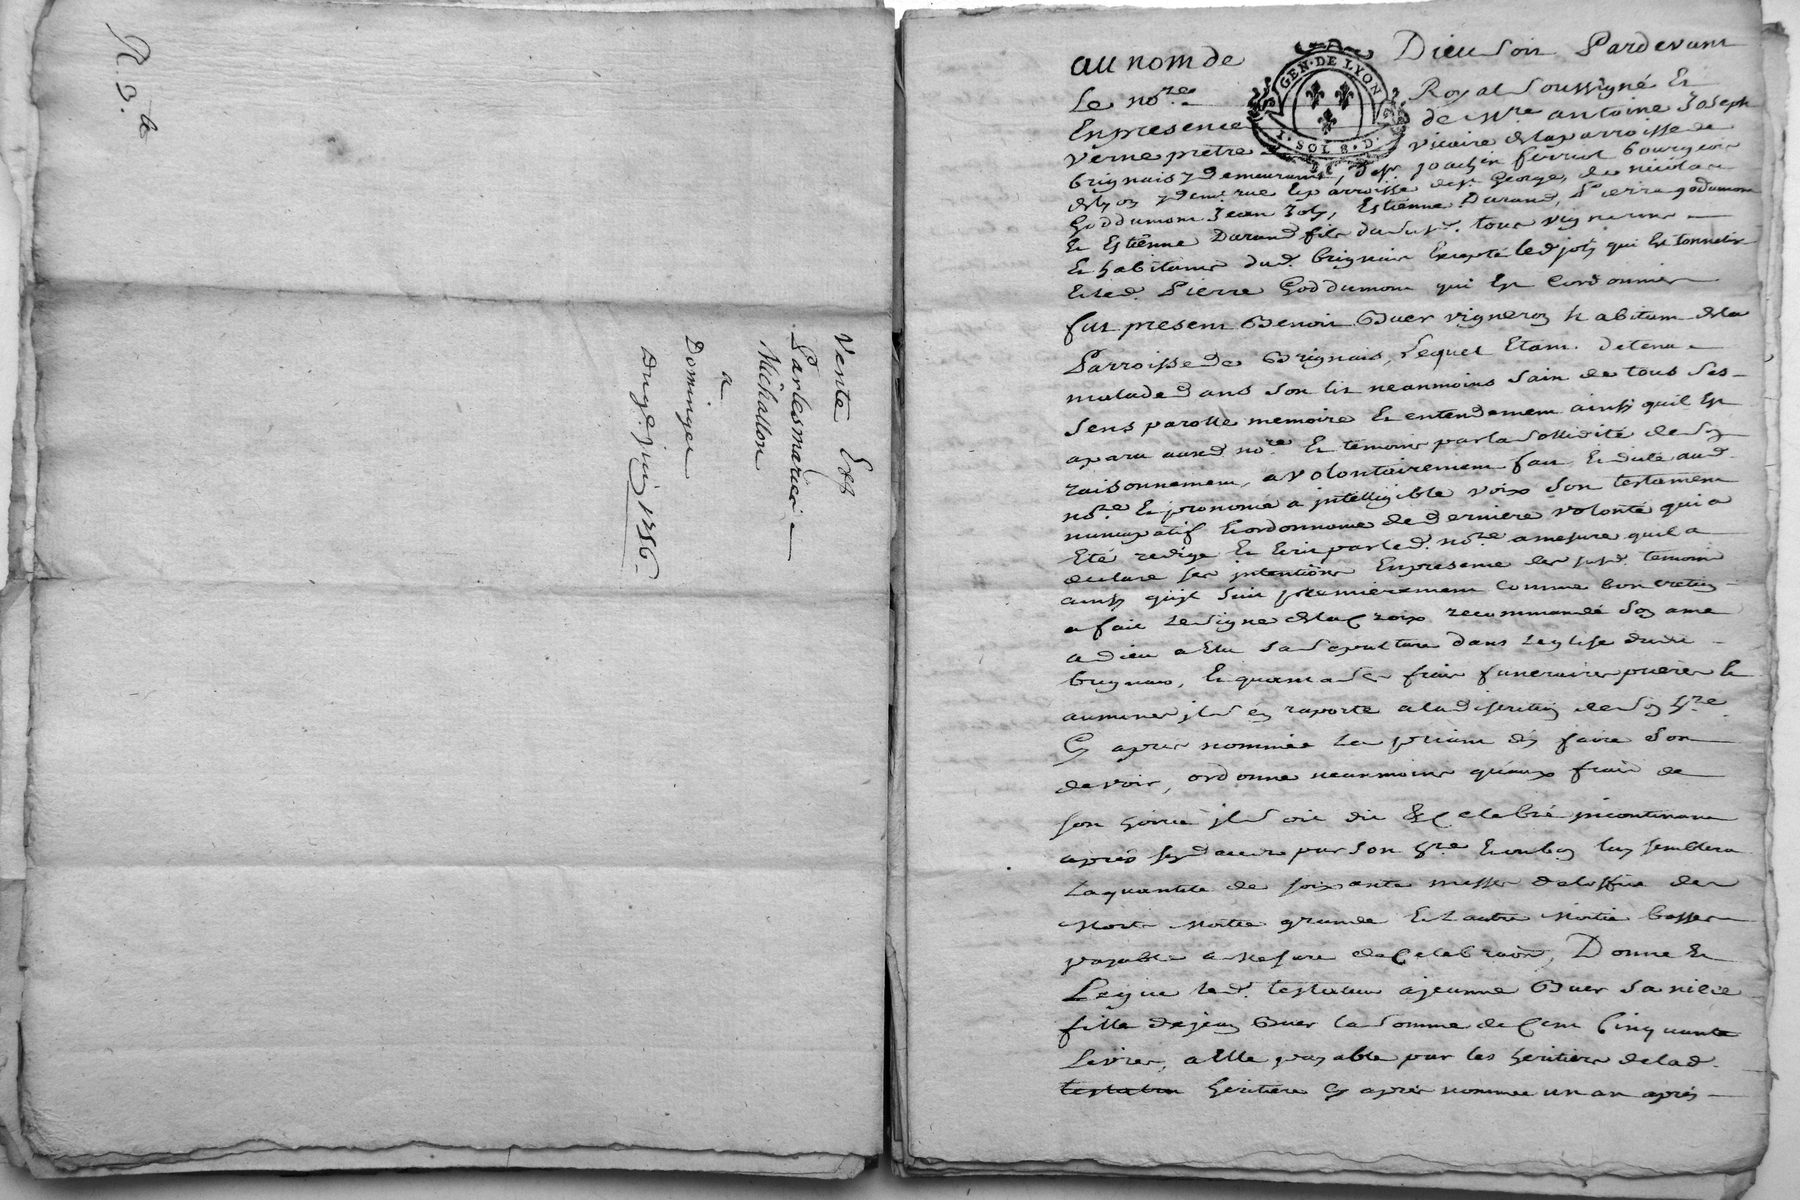 R. 3. e
Vente
Par les mariés
Michallon
a
Dominget
Du 9e. juin 1756.
GEN. DE LYON
1. SOL 8. D.
au nom de Dieu soit Pardevant
Le nore. Royal soussigné Et
En presence de Mre antoine Joseph
verne pretre vicaire de la parroisse de
brignais y demeurant, de sr. joachin ferriol bourgeois
de lyon y demt. rue Et parroisse de st. George, de nicolas
Goddumont Jean Joly, Estienne Durand, Pierre godumont
Et Estienne Durand fils du susd. tous vignerons
Et habitants dud. brignais Excepté led. joly qui Est tonnelier
Et led. Pierre Goddumont qui Est Cordonnier
fut present Benoit Buer vigneron habitant de la
Parroisse de Brignais, Lequel Etant detenu
malade dans son lit neanmoins sain de tous ses
sens parolle memoire Et entendement ainsy quil Est
aparu aud. nore. Et temoins par la sollidité de son
raisonnement, a volontairement fait Et dicté aud.
nore Et prononcé a jntelligible voix son testament
nuncupatif Et ordonnance de derniere volonté qui a
Eté redigé Et Ecrit par led. nore a mesure quil a
declaré ses jntentions En presence des susd. temoins
ainsy quil suit premierement comme bon cretien
a fait le signe de la Croix recommandé son ame
a Dieu a Elu sa sepulture dans leglise dudit
brignais, Et quant a ses frais funeraires prieres Et
aumones jl s'en raporte a la discretion de son hre
Cy apres nommée La priant d'en faire son
devoir, ordonne neanmoins qu'aux frais de
son hoirie jl soit dit & Celebré jncontinant
après son deces par son hre Et ou bon luy semblera
La quantité de soixante messes de loffice des
Morts Moitié grande Et L'autre Moitié basses
payable a Mesure de Celebration, Donne Et
Legue led. testateur a jeanne Buer sa niece
fille de jean Buer la somme de Cent Cinquante
Livres, a Elle payable par les heritiers de lad.
testateur heritiere Cy après nommée un an après